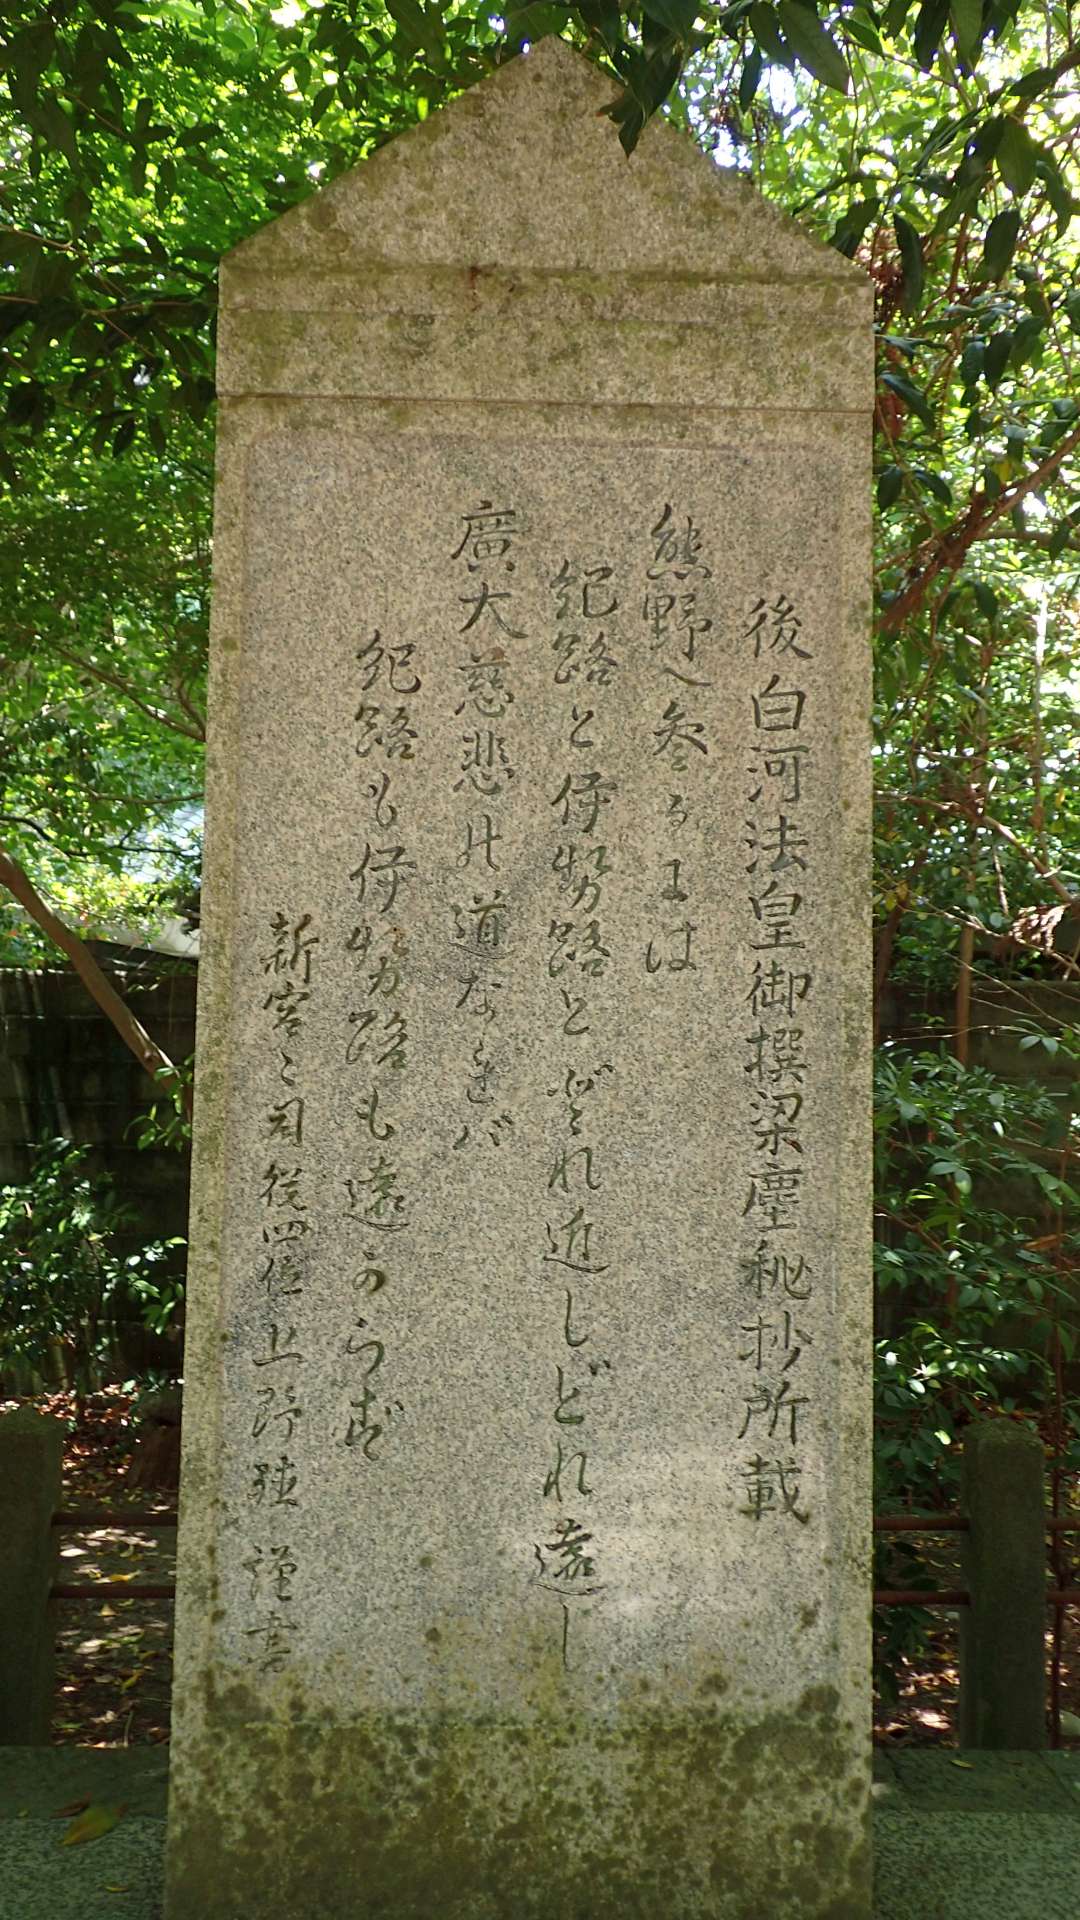 後白河法皇御撰梁塵秘抄所載
熊野へ参るには
紀路と伊勢路とどれ近しどれ遠し
廣大慈悲の道なれバ
紀路も伊勢路も遠からず
新宮々司従四位上野殖謹書